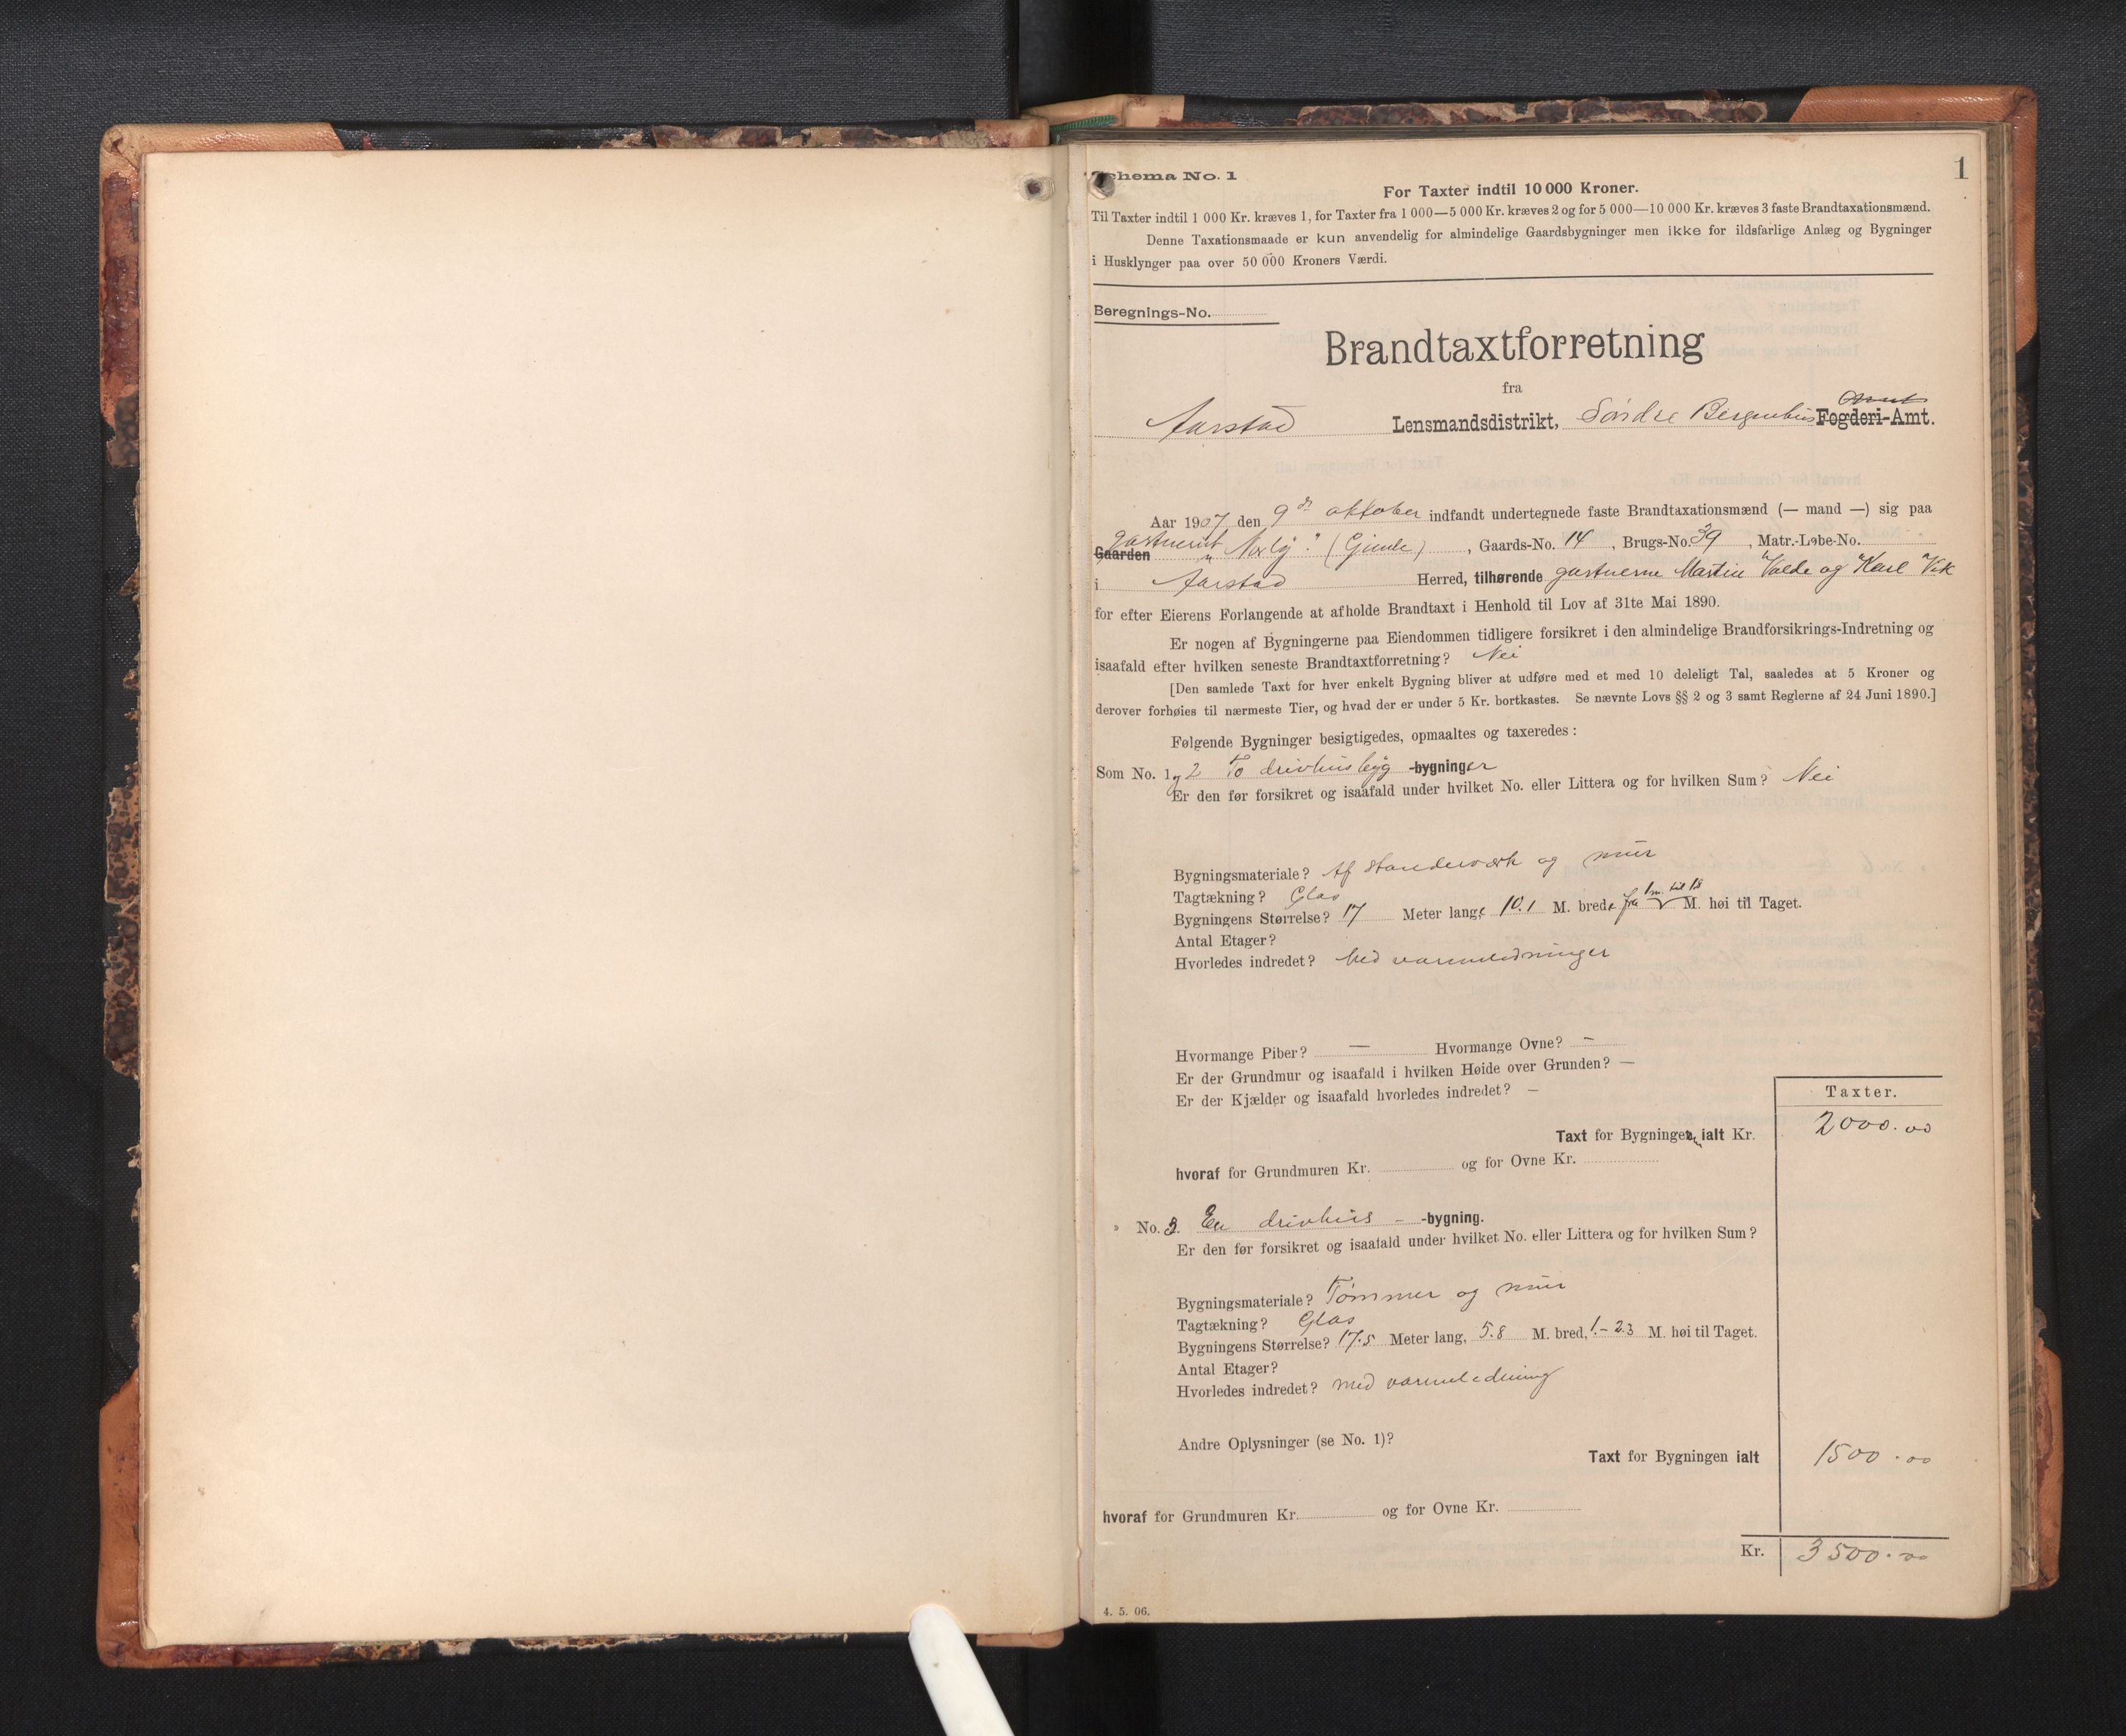 1
Schema No. 1
For Taxter indtil 10 000 Kroner.
Til Taxter indtil 1 000 Kr. kræves 1, for Taxter fra 1 000—5 000 Kr. kræves 2 og for 5 000—10 000 Kr. kræves 3 faste Brandtaxationsmænd.
Denne Taxationsmaade er kun anvendelig for almindelige Gaardsbygninger men ikke for ildsfarlige Anlæg og Bygninger
i Husklynger paa over 50 000 Kroners Værdi.
Beregnings-No.
Brandtaxtforretning
fra
Amt
Aarstad Lensmandsdistrikt, Söndre Bergenhus Fogderi-Amt.
Aar 1907 den 9de oktober indfandt undertegnede faste Brandtaxationsmænd (— mand —) sig paa
Gaarden gartneriet (Gimle), Gaards-No. 14, Brugs-No. 39, Matr.-Løbe-No.
i Aarstad Herred, tilhørende gartnerne Martin Valde og Karl Vik
for efter Eierens Forlangende at afholde Brandtaxt i Henhold til Lov af 31te Mai 1890.
Er nogen af Bygningerne paa Eiendommen tidligere forsikret i den almindelige Brandforsikrings-Indretning og
isaafald efter hvilken seneste Brandtaxtforretning? Nei
[Den samlede Taxt for hver enkelt Bygning bliver at udføre med et med 10 deleligt Tal, saaledes at 5 Kroner og
derover forhøies til nærmeste Tier, og hvad der er under 5 Kr. bortkastes. Se nævnte Lovs §§ 2 og 3 samt Reglerne af 24 Juni 1890.]
Følgende Bygninger besigtigedes, opmaaltes og taxeredes:
Som No. 1 og 2 To drivhusbyg -bygninger
Er den før forsikret og isaafald under hvilket No. eller Littera og for hvilken Sum? Nei
Bygningsmateriale? Af standerværk og mur
Tagtækning? Glas
Bygningens Størrelse? 17 Meter lange 10.1 M. brede fra 1 m. til 18 M. høi til Taget.
Antal Etager?
Hvorledes indredet? Med varmeledninger
Hvormange Piber? — Hvormange Ovne? —
Er der Grundmur og isaafald i hvilken Høide over Grunden? —
Er der Kjælder og isaafald hvorledes indredet? —
Taxter.
Taxt for Bygningen ialt Kr. 2000.00
hvoraf for Grundmuren Kr. og for Ovne Kr.
» No. 3. En drivhus - -bygning.
Er den før forsikret og isaafald under hvilket No. eller Littera og for hvilken Sum?
Bygningsmateriale? Tömmer og mur
Tagtækning? Glas
Bygningens Størrelse? 17.5 Meter lang, 5.8 M. bred, 1.-2.3 M. høi til Taget.
Antal Etager?
Hvorledes indredet? med varmeledning
Andre Oplysninger (se No. 1)?
Taxt for Bygningen ialt 1500.00
hvoraf for Grundmuren Kr. og for Ovne Kr.
Kr. 3500.00
4. 5. 06.